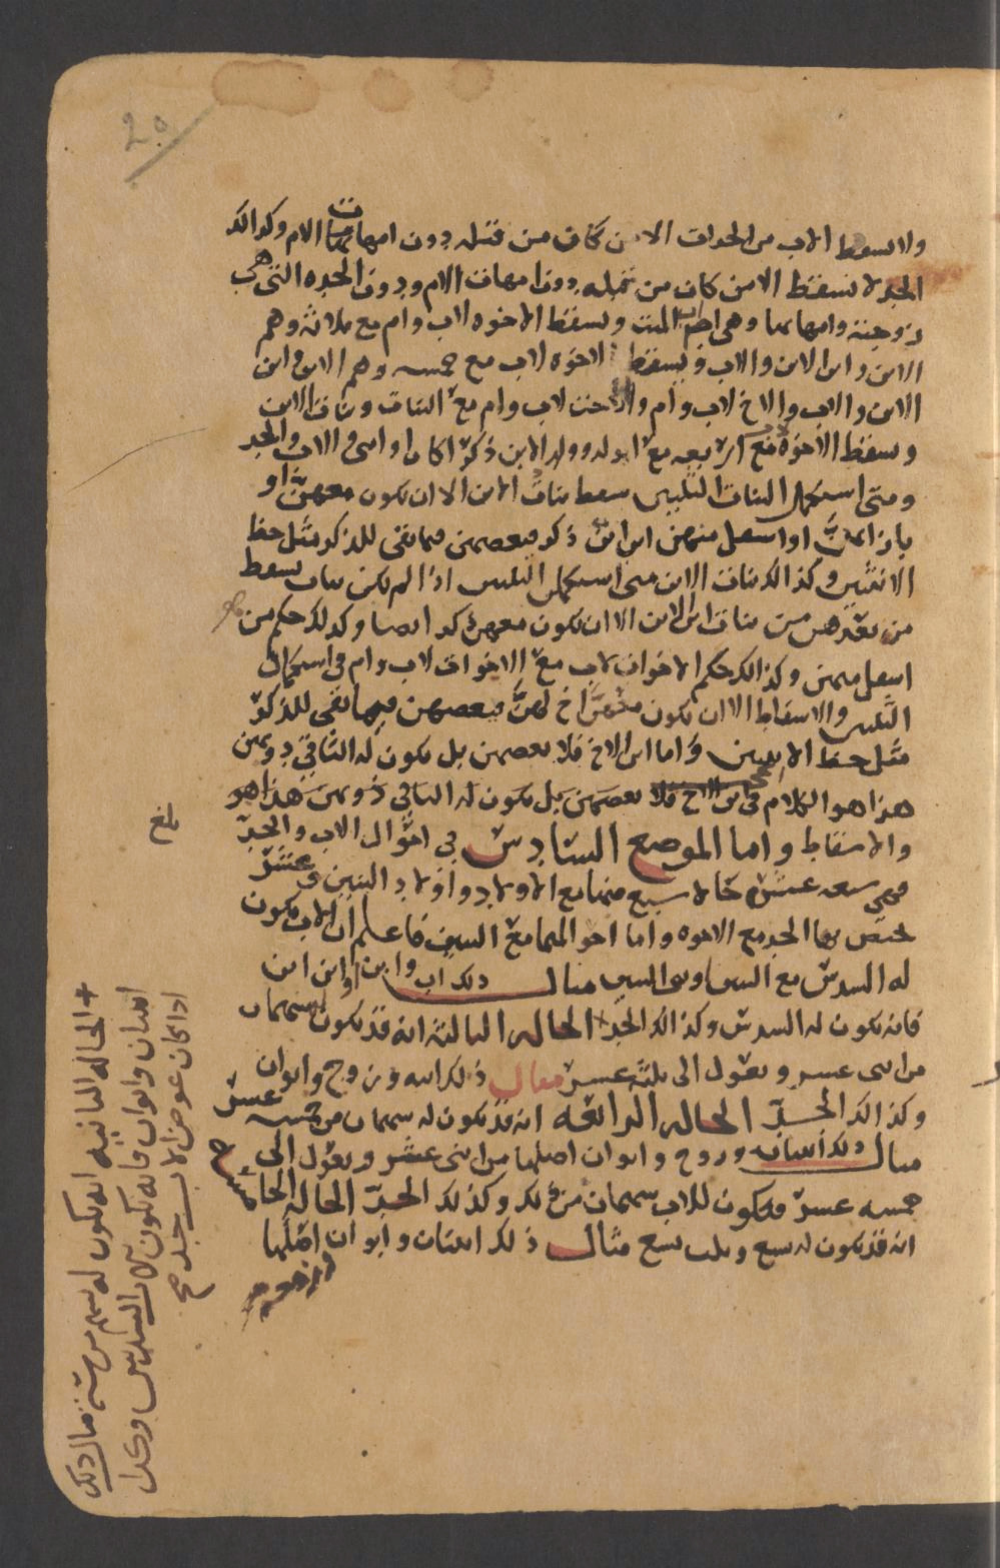 ٢٥
ولا يسقط الاب من الجدات الا من كان من قبله دون امهات الام وكذالك
الجد لا يسقط الا من كان من قبله دون امهات الام ودون الجده التي هي
زوجته وامهاتها وهي ام الميت ويسقط الاخوه لاب وام مع ثلاثه وهم
الابن وابن الابن والاب ويسقط الاخوه لاب مع خمسه وهم الابن وابن
الابن والاب والاخ لاب وام والاخت لاب وام مع البنات وبنات الابن
وسقط الاخوة مع اربعه مع الولد وولد الابن ذكرا كان او انثى والاب والجد
ومتى استكمل البنات الثلثين سقط بنات الابن الا ان يكون معهن او
بازائهن او اسفل منهن ابن ابن ذكر فيعصبهن فيما بقي للذكر مثل حظ
الانثيين وكذالك بنات الابن متى استكملن الثلثين اذا لم يكن بنات يسقط
من بعدهن من بنات ابن الابن الا ان يكون معهن كذا ايضا وكذلك حكم من
اسفل منهن وكذالك حكم الاخوات لاب مع الاخوات لاب وام في استكمال
الثلثين والاسقاط الا ان يكون معهن اخ لهن فيعصبهن فيما بقي للذكر
مثل حظ الانثيين واما ابن الاخ فلا يعصبهن بل يكون له الباقي دونهن
هذا هو الكلام في ابن الاخ فلا يعصبهن بل يكون له الباقي دونهن هذا هو
والاسقاط واما الموضع السادس في احوال الاب والجد
فهي سبعه عشر حالا سبع منها مع الاولاد واولاد البنين وعشر
يختص بها الجد مع الاخوه واما احوالهما مع البنين فاعلم ان الاب يكون
له السدس مع البنين وبني البنين مثال ذلك اب وابن او ابن ابن
فانه يكون له السدس وكذالك الجد + الحاله الثالثة انه قد يكون له سهمان
من اثنى عشر ويعول الى ثلثة عشر مثال ذلك ابنه وزوج وابوان
وكذالك الجد الحاله الرابعه انه قد يكون له سهمان من خمسه عشر
مثال ذلك ابنتان وزوج وابوان اصلها من اثنى عشر ويعول الى
خمسه عشر فيكون للاب سهمان من ذلك وكذلك الجد الحاله الخامسه
انه قد يكون له سبع وثلث سبع مثال ذلك ابنتان وابوان اصلها
+ الحاله الثانيه انه يكون له سهم من سته مثال ذلك
ابنتان وابوان فانه يكون للاب السدس وكذا
اذا كان عوض الاب جد صح